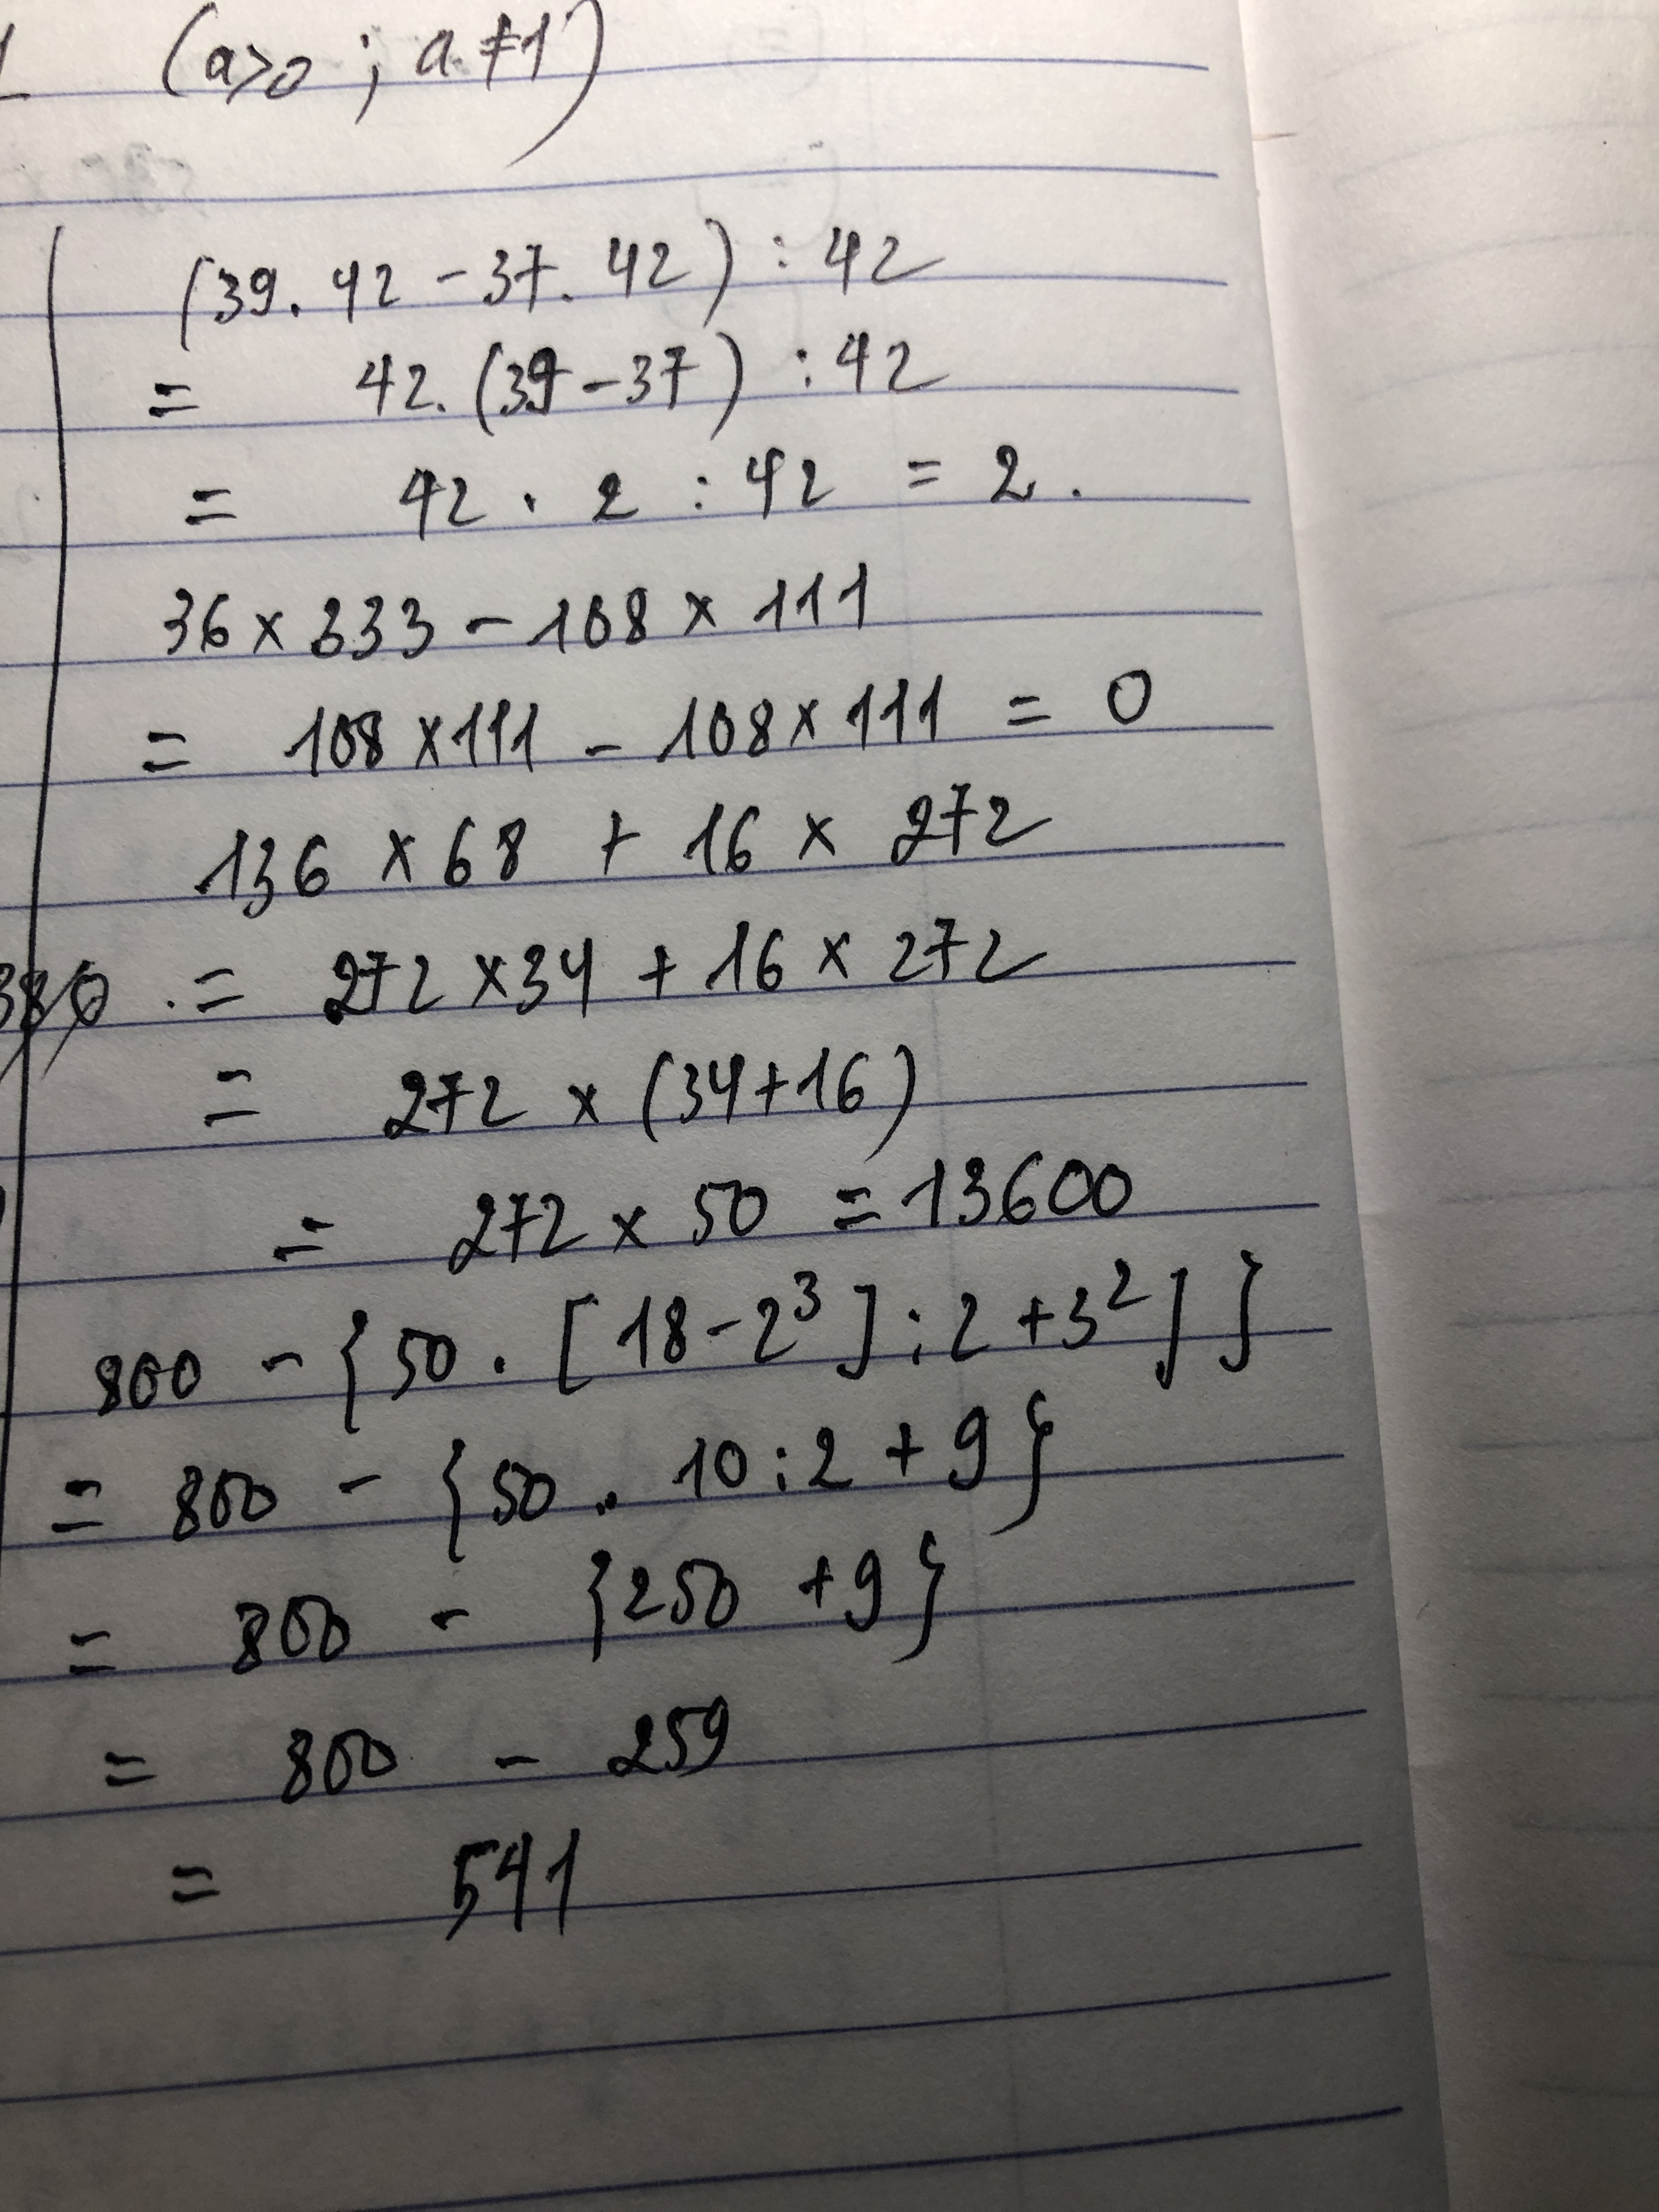 (a>0 ; a≠1)
(39. 42 - 37. 42) : 42
= 42. (39 - 37) : 42
= 42 . 2 : 42 = 2.
36 x 333 - 108 x 111
= 108 x 111 - 108 x 111 = 0
136 x 68 + 16 x 272
= 272 x 34 + 16 x 272
= 272 x (34+16)
= 272 x 50 = 13600
800 - {50 . [18 - 2³] : 2 + 3²] }
= 800 - {50 . 10 : 2 + 9}
= 800 - {250 + 9}
= 800 - 259
= 541